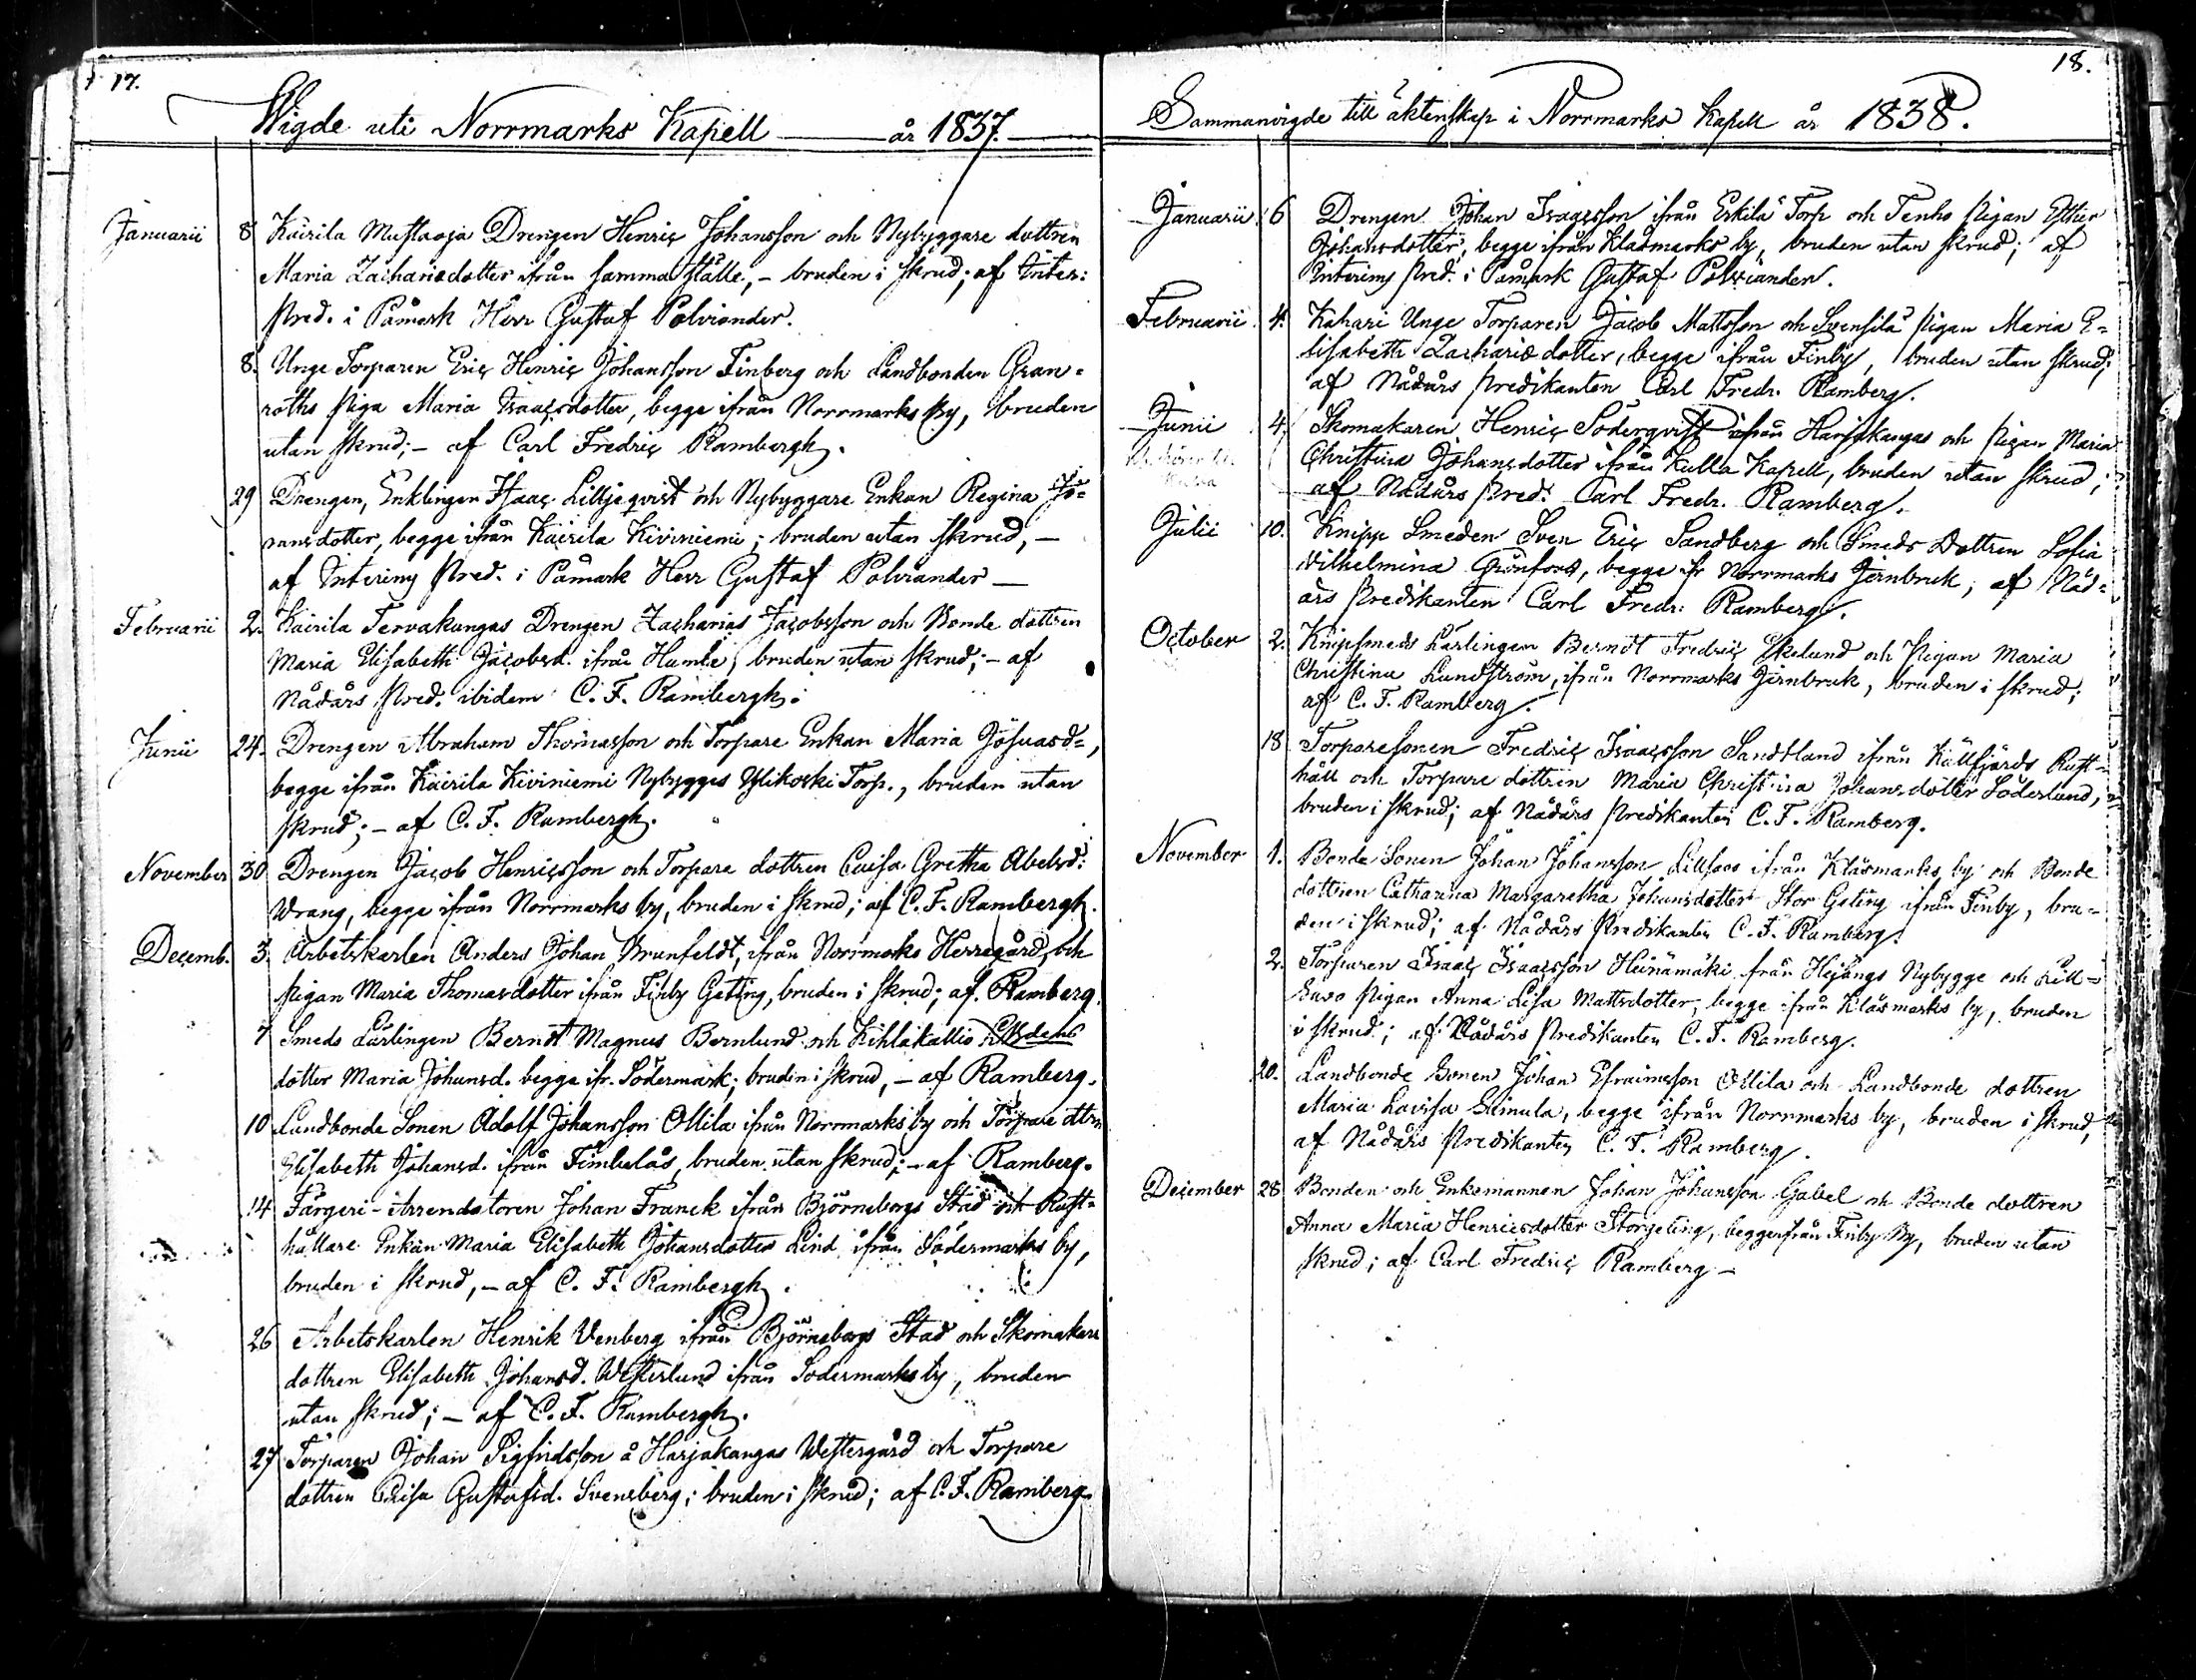 17.
Wigde uti Norrmarks Kapell år 1837.
Januarii 8 Kairila Mustaoja Drengen Henric Johansson och Nybyggare dottren
Maria Zachariædotter ifrån samma ställe, - bruden i skrud; af Inter:
Pred. i Påmark Herr Gustaf Polviander.
8. Unge Torparen Eric Henric Johansson Finberg och Landbonden Gran-
roths Piga Maria Isaacsdotter, begge ifrån Norrmarks By, bruden
utan skrud; - af Carl Fredric Rambergh.
29 Drengen, Enklingen Isaac Lilljeqvist och Nybyggare Enkan Regina Jö-
ransdotter, begge ifrån Kairila Kiviniemi; bruden utan skrud, -
af Interims Pred. i Påmark Herr Gustaf Polviander -
Februarii 2. Kairila Tervakangas Drengen Zacharias Jacobsson och Bonde dottren
Maria Elisabeth Jacobsd. ifrån Humle, bruden utan skrud; - af
Nådårs Pred. ibidem C. F. Rambergh.
Junii 24. Drengen Abraham Thomasson och Torpare Enkan Maria Josuasd-,
begge ifrån Kairila Kiviniemi Nybygges Ylikoski Torp., bruden utan
skrud; - af C. F. Rambergh.
November 30 Drengen Jacob Henricsson och Torpare dottren Caisa Gretha Abelsd:
Wrang, begge ifrån Norrmarks by, bruden i skrud; af C. F. Rambergh.
Decemb. 3. Arbetskarlen Anders Johan Brunfeldt, ifrån Norrmarks Herregård, och
Pigan Maria Thomasdotter ifrån Finby Geting, bruden i skrud; af. Ramberg.
7 Smeds Lärlingen Berndt Magnus Bernlund och Kihlakallio
dotter Maria Johansd. begge ifr. Södermark; bruden i skrud, - af Ramberg.
10 Landbonde Sonen Adolf Johansson Ollila ifrån Norrmarks by och Torpare dttrn
Elisabeth Johansd. ifrån Fimbelås, bruden utan skrud; - af Ramberg.
14 Färgeri-Arrendatoren Johan Franck ifrån Björneborgs Stad och Rust-
hållare Enkan Maria Elisabeth Johansdotter Lind ifrån Södermarks by,
bruden i skrud, - af C. F. Rambergh.
26 Arbetskarlen Henrik Venberg ifrån Björneborgs Stad och Skomakare
dottren Elisabeth Johansd. Westerlund ifrån Södermarks by, bruden
utan skrud; - af C. F. Rambergh.
27 Torparen Johan Sigfridsson å Harjakangas Westergård och Torpare
dottren Caisa Gustafsd. Svensberg; bruden i skrud; af C. F. Ramberg.
18.
Sammanvigde till äktenskap i Norrmarks Kapell år 1838.
Januarii 6 Drengen Johan Isaacsson ifrån Erkilä Torp och Tenho Pigan Esther
Johansdotter, begge ifrån Klåsmarks by, bruden utan skrud; af
Interims Pred. i Påmark Gustaf Polviander.
Februarii 4. Kahari Unge Torparen Jacob Mattsson och Svensilä Pigan Maria E-
lisabeth Zachariædotter, begge ifrån Finby, bruden utan skrud;
af Nådårs Predikanten Carl Fredr. Ramberg.
Junii 4. Skomakaren Henric Söderqvist ifrån Harjakangas och Pigan Maria
Christina Johansdotter ifrån Kulla Kapell, bruden utan skrud;
af Nådårs Pred. Carl Fredr. Ramberg.
Julii 10. Knipp Smeden Sven Eric Sandberg och Smeds Dottren Sofia
Wilhelmina Grönfors, begge ifr Norrmarks Jernbruk; af Nåd-
års Predikanten Carl Fredr. Ramberg.
October 2. Knipsmeds Lärlingen Berndt Fredric Ekelund och Pigan Maria
Christina Lundström, ifrån Norrmarks Jernbruk, bruden i skrud;
af C. F. Ramberg.
18 Torparesonen Fredric Isaacsson Sandtland ifrån Källfjärds Rust-
håll och Torpare dottren Maria Christina Johansdotter Söderlund,
bruden i skrud; af Nådårs Predikanten C. F. Ramberg.
November 1. Bonde Sonen Johan Johansson Lillsavo ifrån Klåsmarks by och Bonde
dottren Catharina Margaretha Johansdotter Stor Geting ifrån Finby, bru-
den i skrud; af Nådårs Predikanten C. F. Ramberg.
2. Torparen Isaac Isaacsson Heinämäki från Hejängs Nybygge och Lill-
Savo Pigan Anna Lisa Mattsdotter, begge ifrån Klåsmarks by, bruden
i skrud; af Nådårs Predikanten C. F. Ramberg.
20. Landbonde Sonen Johan Efraimsson Ollila och Landbonde dottren
Maria Lovisa Seimula, begge ifrån Norrmarks by, bruden i skrud,
af Nådårs Predikanten C. F. Ramberg.
December 28 Bonden och Enkemannen Johan Johansson Gabel och Bonde dottren
Anna Maria Henricsdotter Storgeting, begge ifrån Finby By, bruden utan
skrud; af Carl Fredric Ramberg -